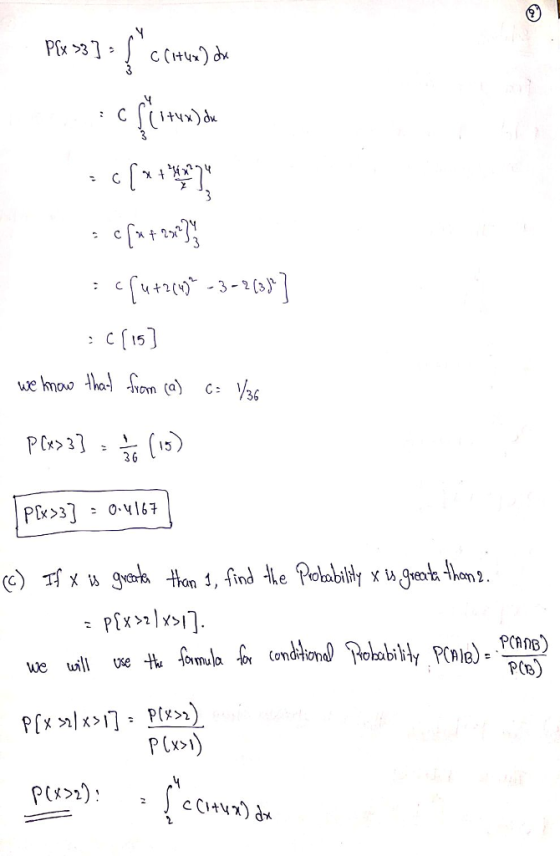 9
P[x >3] = ∫₃⁴ c (1+4x) dx
= c ∫₃⁴ (1+4x) dx
= c [x + ²4x²/2]₃⁴
= c [x + 2x²]₃⁴
= c [4+2(4)² - 3 - 2(3)²]
= c [15]
we know that from (a) c = 1/36
P(x>3] = 1/36 (15)
P[x>3] = 0.4167
(c) If x is greater than 1, find the Probability x is greater than 2.
= P[x>2|x>1].
we will use the formula for conditional Probability P(A|B) = P(A∩B)/P(B)
P[x >2|x>1] = P(x>2)/P(x>1)
P(x>2): = ∫₂⁴ c(1+4x) dx